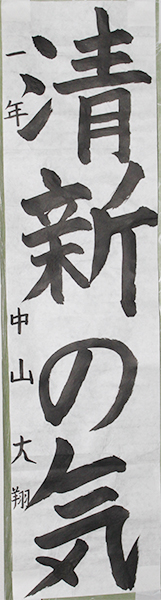 清新の気
一年 中山大翔